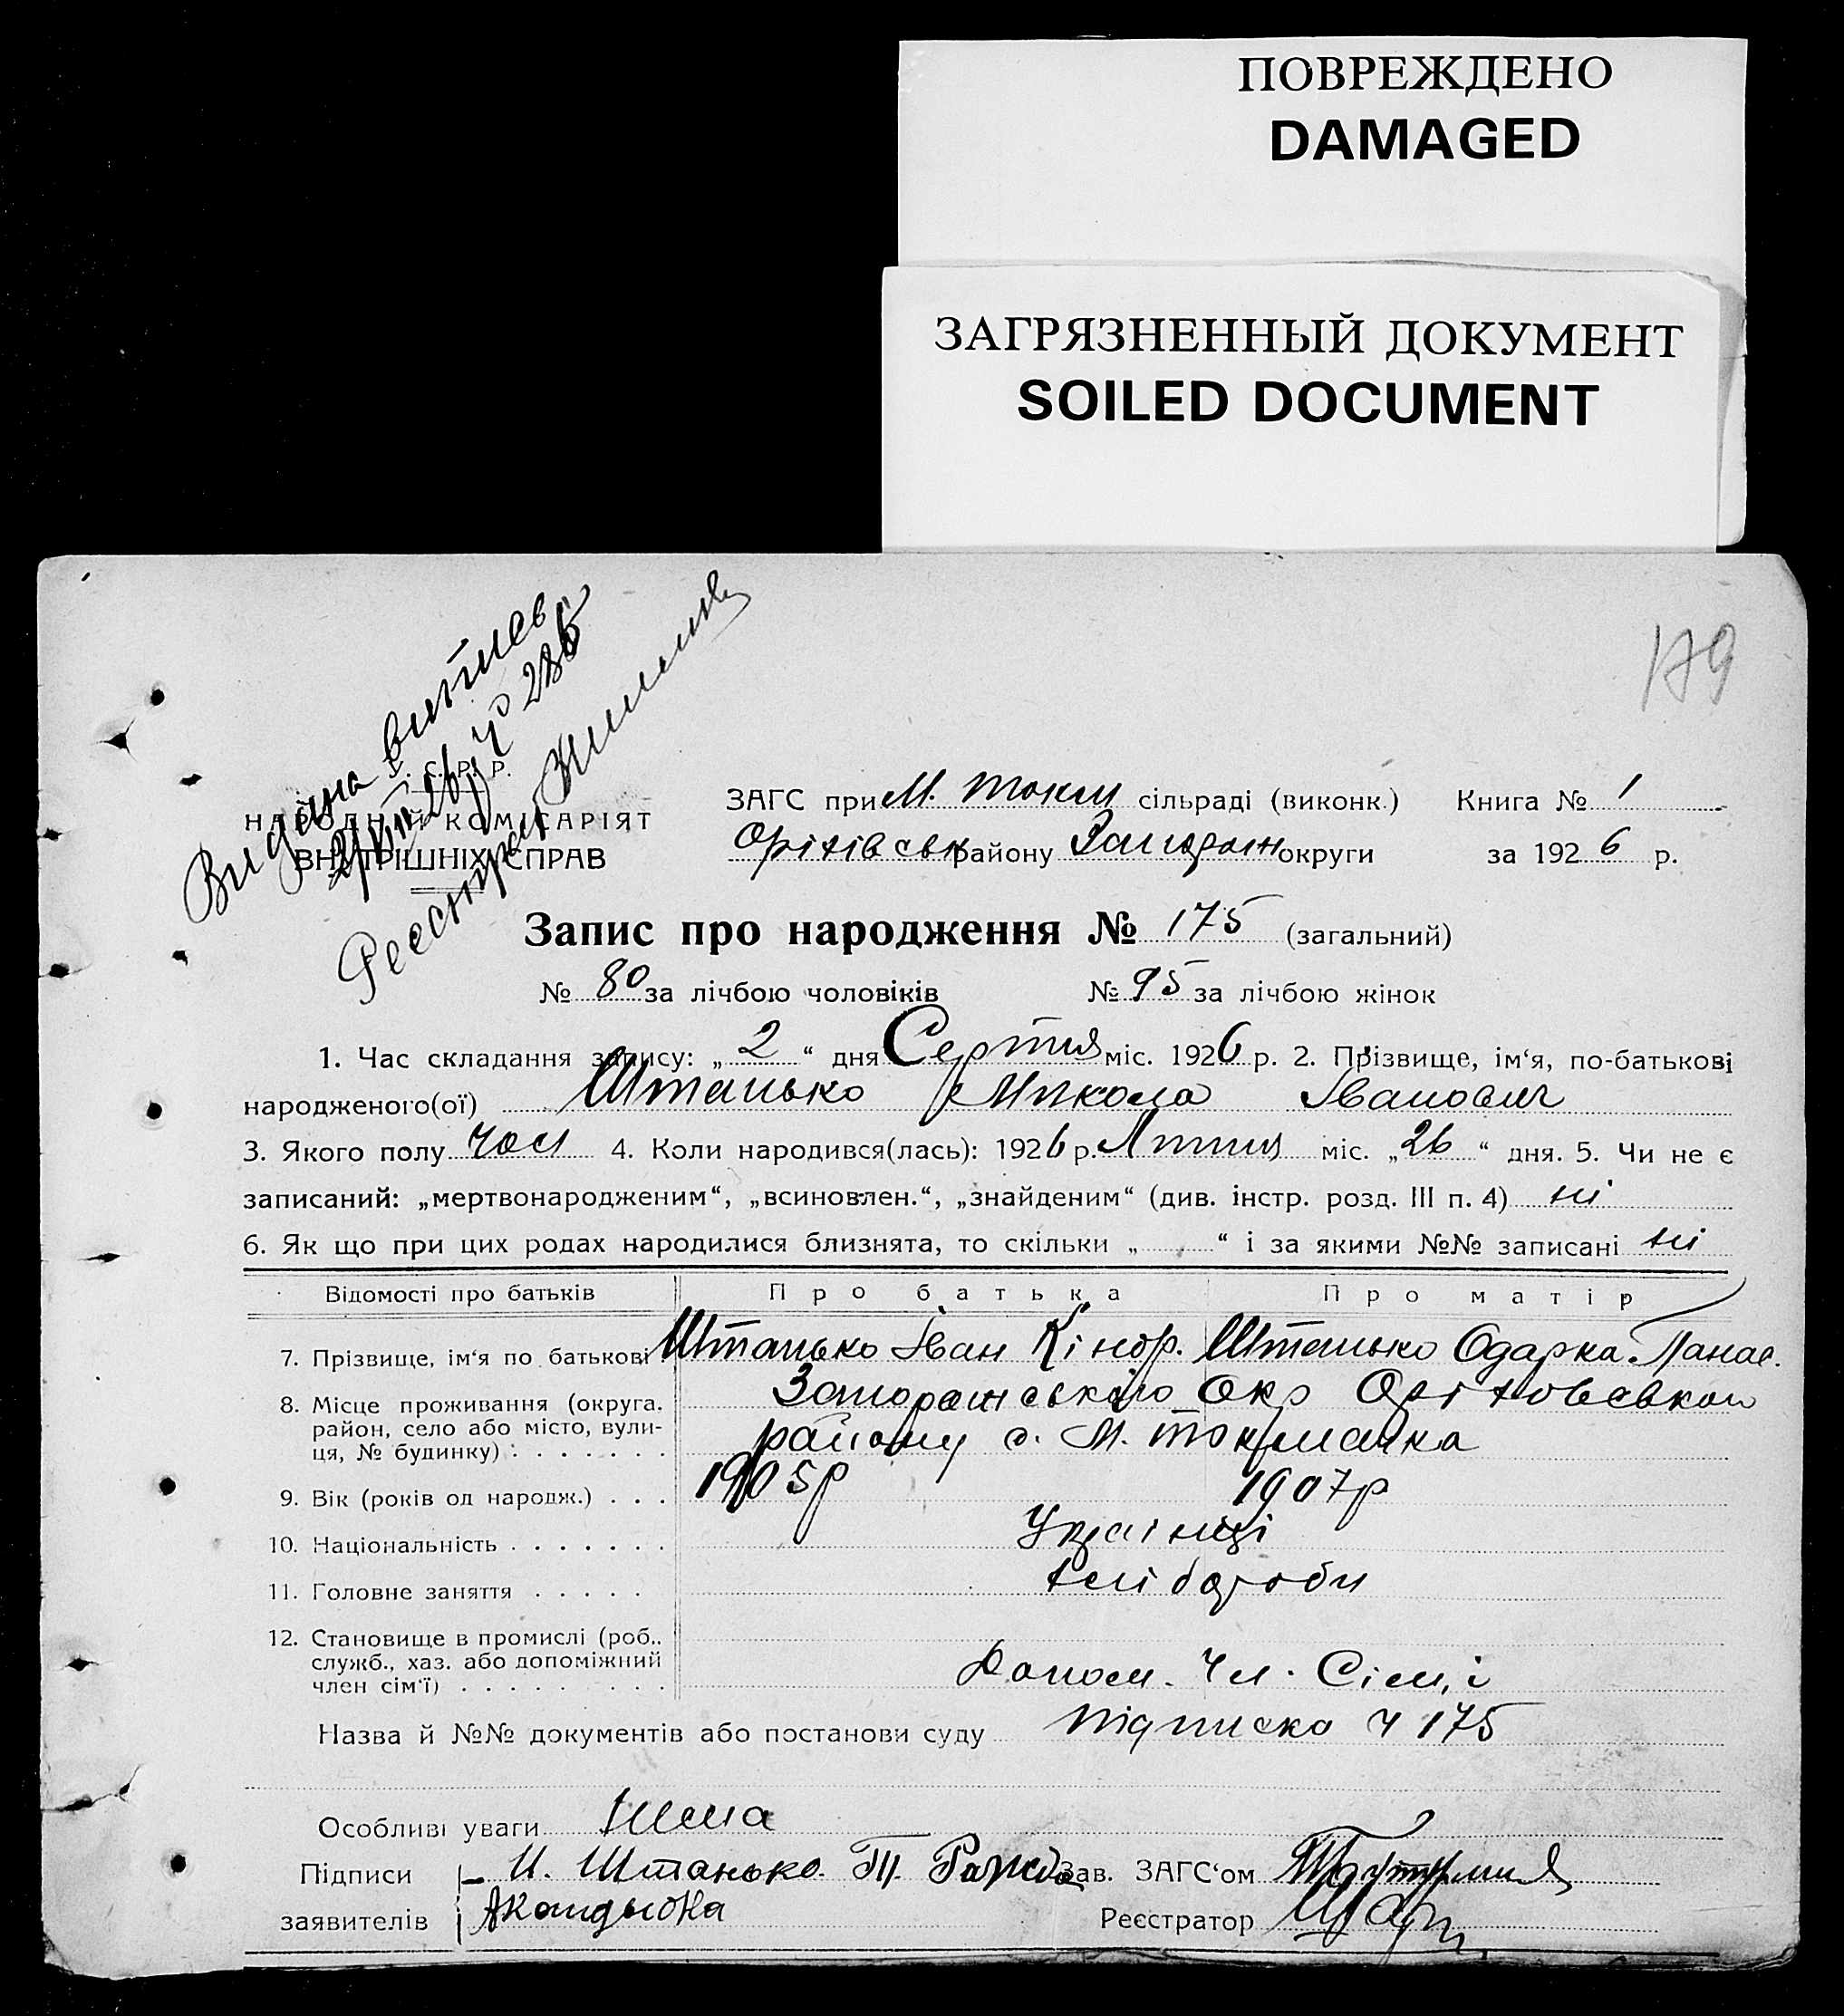 ПОВРЕЖДЕНО
DAMAGED
ЗАГРЯЗНЕННЫЙ ДОКУМЕНТ
SOILED DOCUMENT
179
Видана витяг
2/VIII 26 ч 285
Реєстрат
У. С. Р. Р.
НАРОДНИЙ КОМІСАРІЯТ
ВНУТРІШНІХ СПРАВ
ЗАГС при М. Токм сільраді (виконк.) Книга № 1
Оріхівськ району Запорож округи за 1926 р.
Запис про народження № 175 (загальний)
№ 80 за лічбою чоловіків № 95 за лічбою жінок
1. Час складання запису: „ 2 “ дня Серпня міс. 1926 р. 2. Прізвище, ім‘я, по-батькові
народженого(ої) Штанько Микола Іванович
3. Якого полу чол 4. Коли народився(лась): 1926 р. Липня міс. „ 26 “ дня. 5. Чи не є
записаний: „мертвонародженим“, „всиновлен.“, „знайденим“ (див. інстр. розд. III п. 4) ні
6. Як що при цих родах народилися близнята, то скільки „ “ і за якими №№ записані ні
Відомості про батьків Про батька Про матір
7. Прізвище, ім‘я по батькові Штанько Іван Кіндр. Штанько Одарка Панас.
8. Місце проживання (округа, район, село або місто, вулиця, № будинку) Запорожського Окр Оріховського
району с. М. Токмачка
9. Вік (років од народж.) 1905р 1907р
10. Національність Українці
11. Головне заняття хліборобы
12. Становище в промислі (роб., служб., хаз. або допоміжний член сім‘ї) Допом. Чл. Сім,і
Назва й №№ документів або постанови суду Підписка ч 175
Особливі уваги Нема
Підписи И. Штанько. Зав. ЗАГС‘ом
заявителів Реєстратор